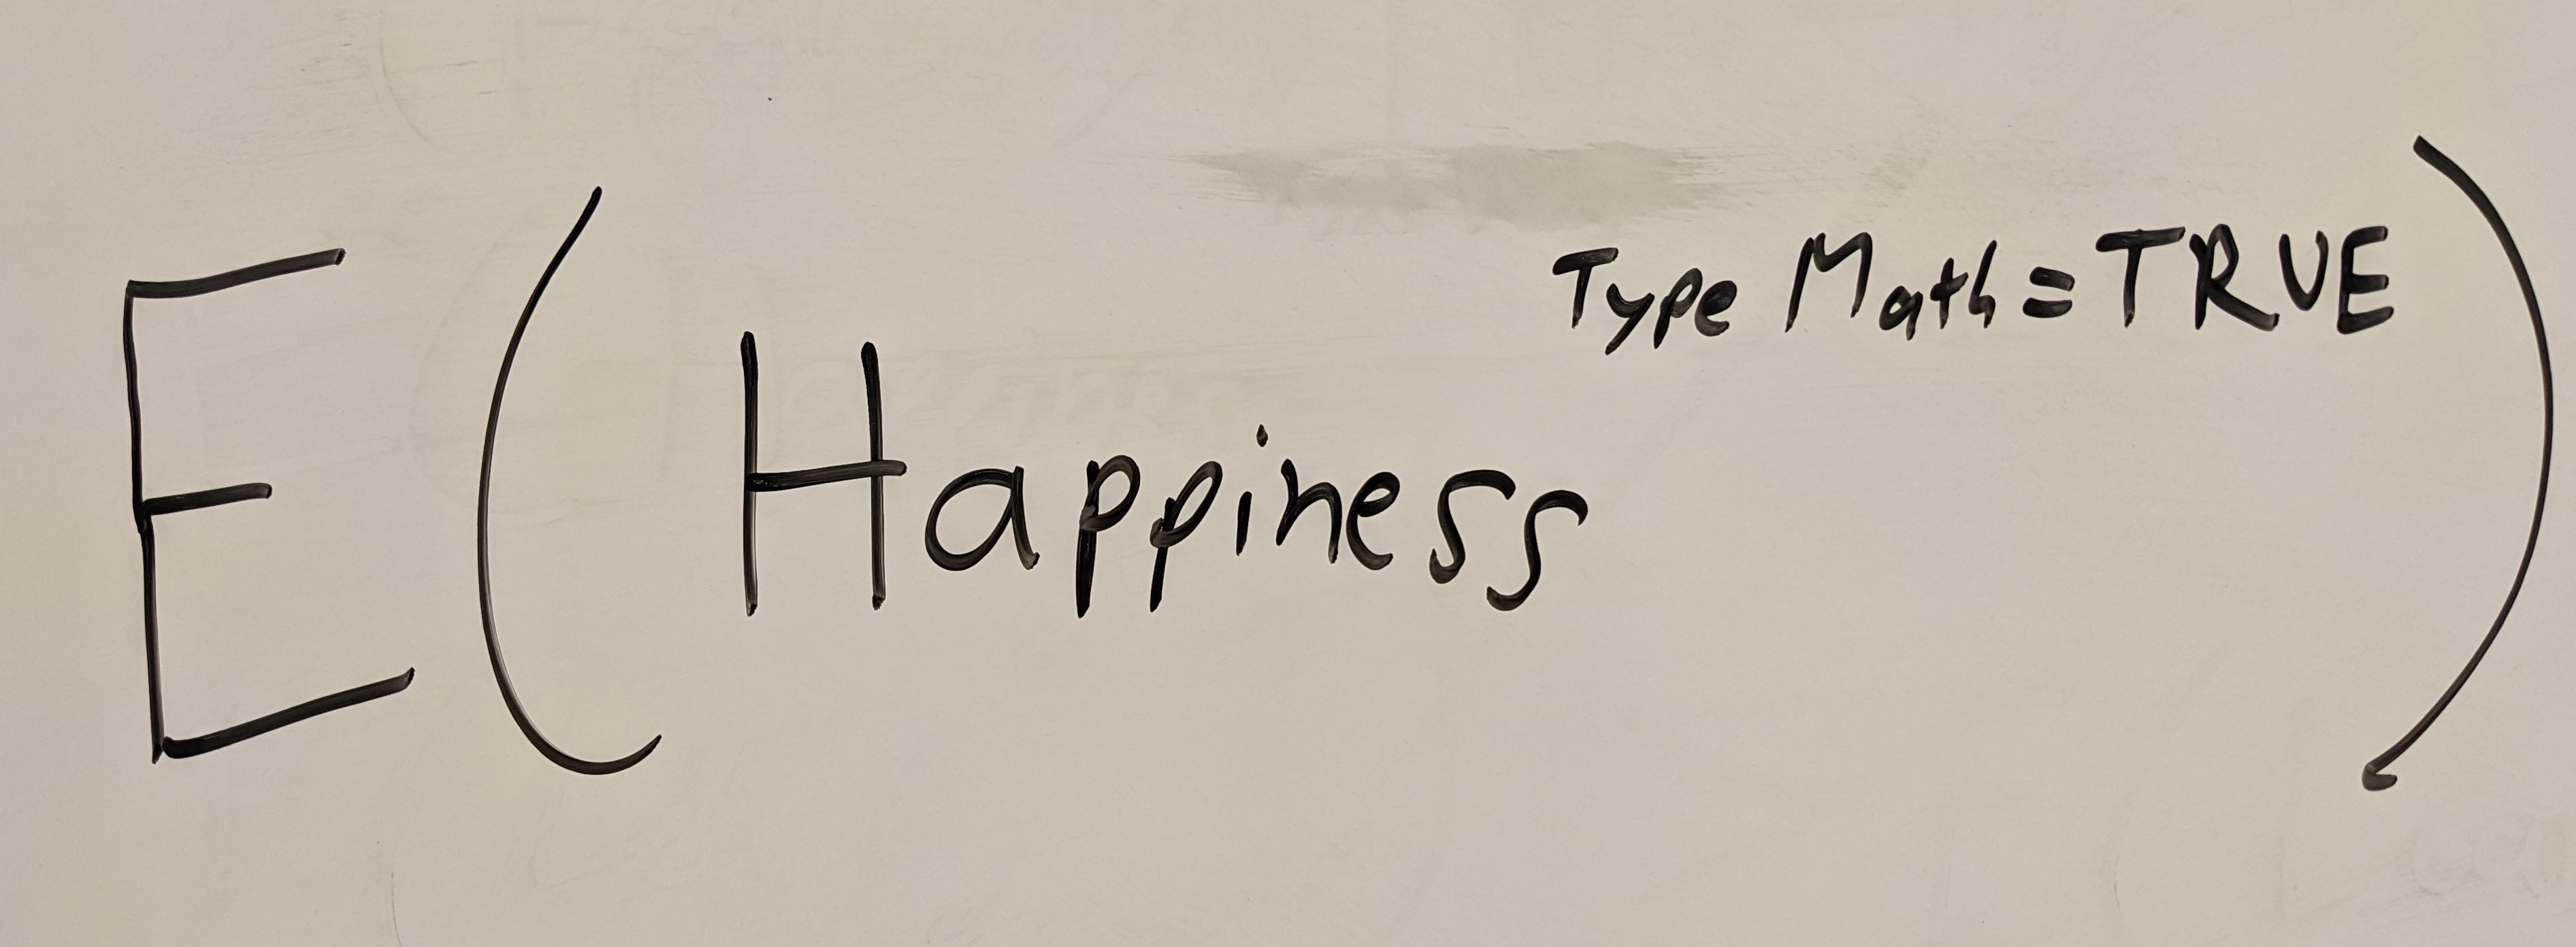 E(Happiness^Type Math=TRUE)